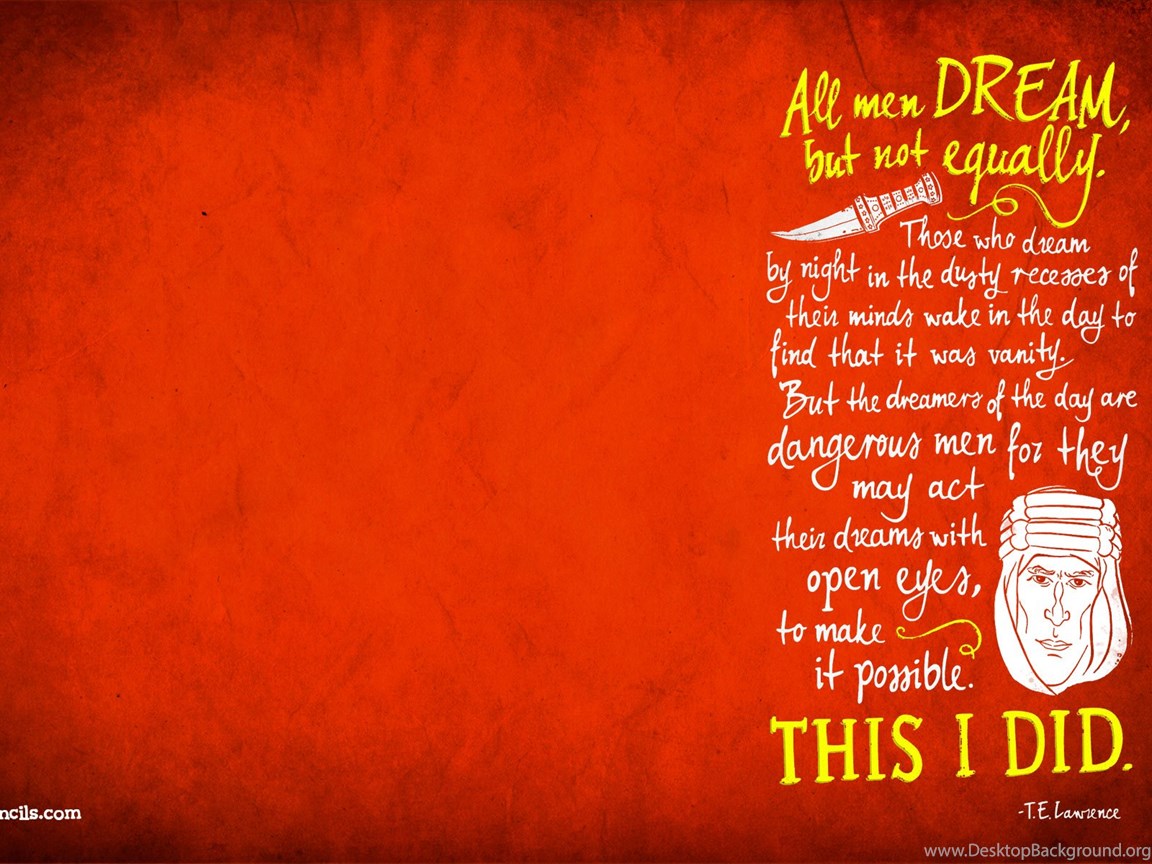 All men DREAM,
but not equally.
Those who dream
by night in the dusty recesses of
their minds wake in the day to
find that it was vanity.
But the dreamers of the day are
dangerous men for they
may act
their dreams with
open eyes,
to make
it possible.
THIS I DID.
-T.E. Lawrence
ncils.com
www.DesktopBackground.org